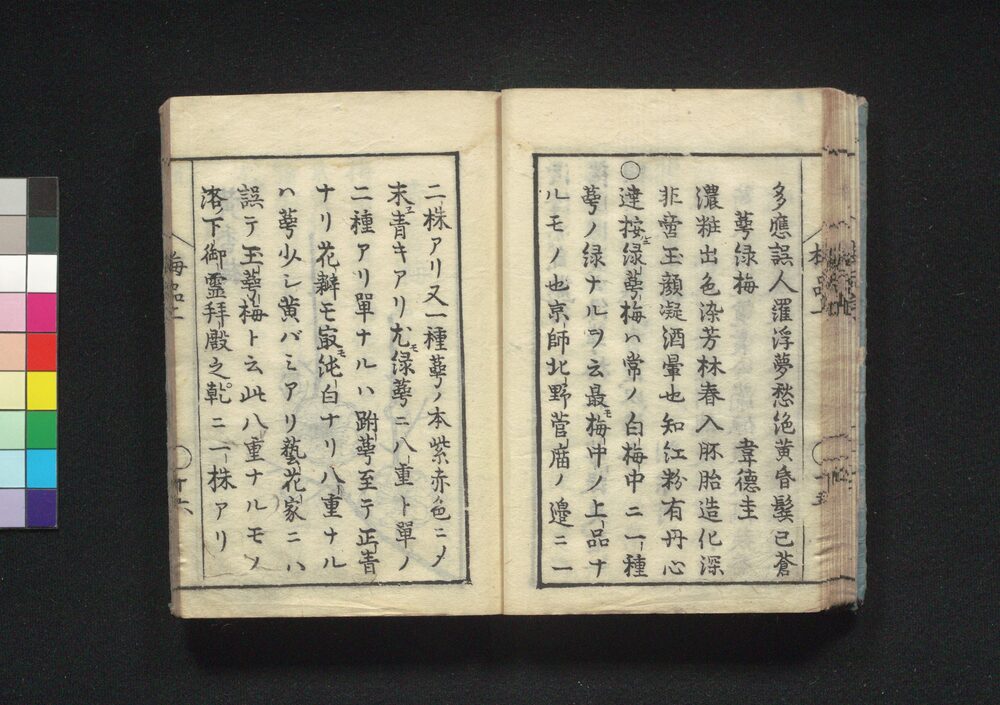 多應誤人羅浮夢愁絶黄昏鬂已蒼
萼緑梅　韋德圭
濃粧出色染芳林春入胚胎造化深
非啻玉顔凝酒暈也知江粉有丹心
○達按緑萼梅ハ常ノ白梅中ニ一種
萼ノ緑ナルヲ云最モ梅中ノ上品ナ
ルモノ也京師北野菅庿ノ邉ニ一
二株アリ又一種萼ノ本紫赤色ニメ
末青キアリ尤モ緑萼ニ八重ト單ノ
二種アリ單ナルハ跗萼至テ正青
ナリ花辨モ㝡モ純白ナリ八重ナル
ハ萼少シ黄バミアリ藝花家ニハ
誤テ玉萼梅ト云此八重ナルモノ
洛下御霊拜殿之乾ニ一株アリ
梅品二